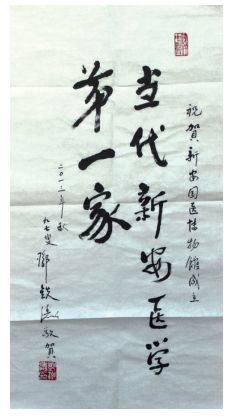 祝贺新安国医博物馆成立
当代新安医学
第一家
二〇一二年秋
九七叟 邓铁涛敬贺